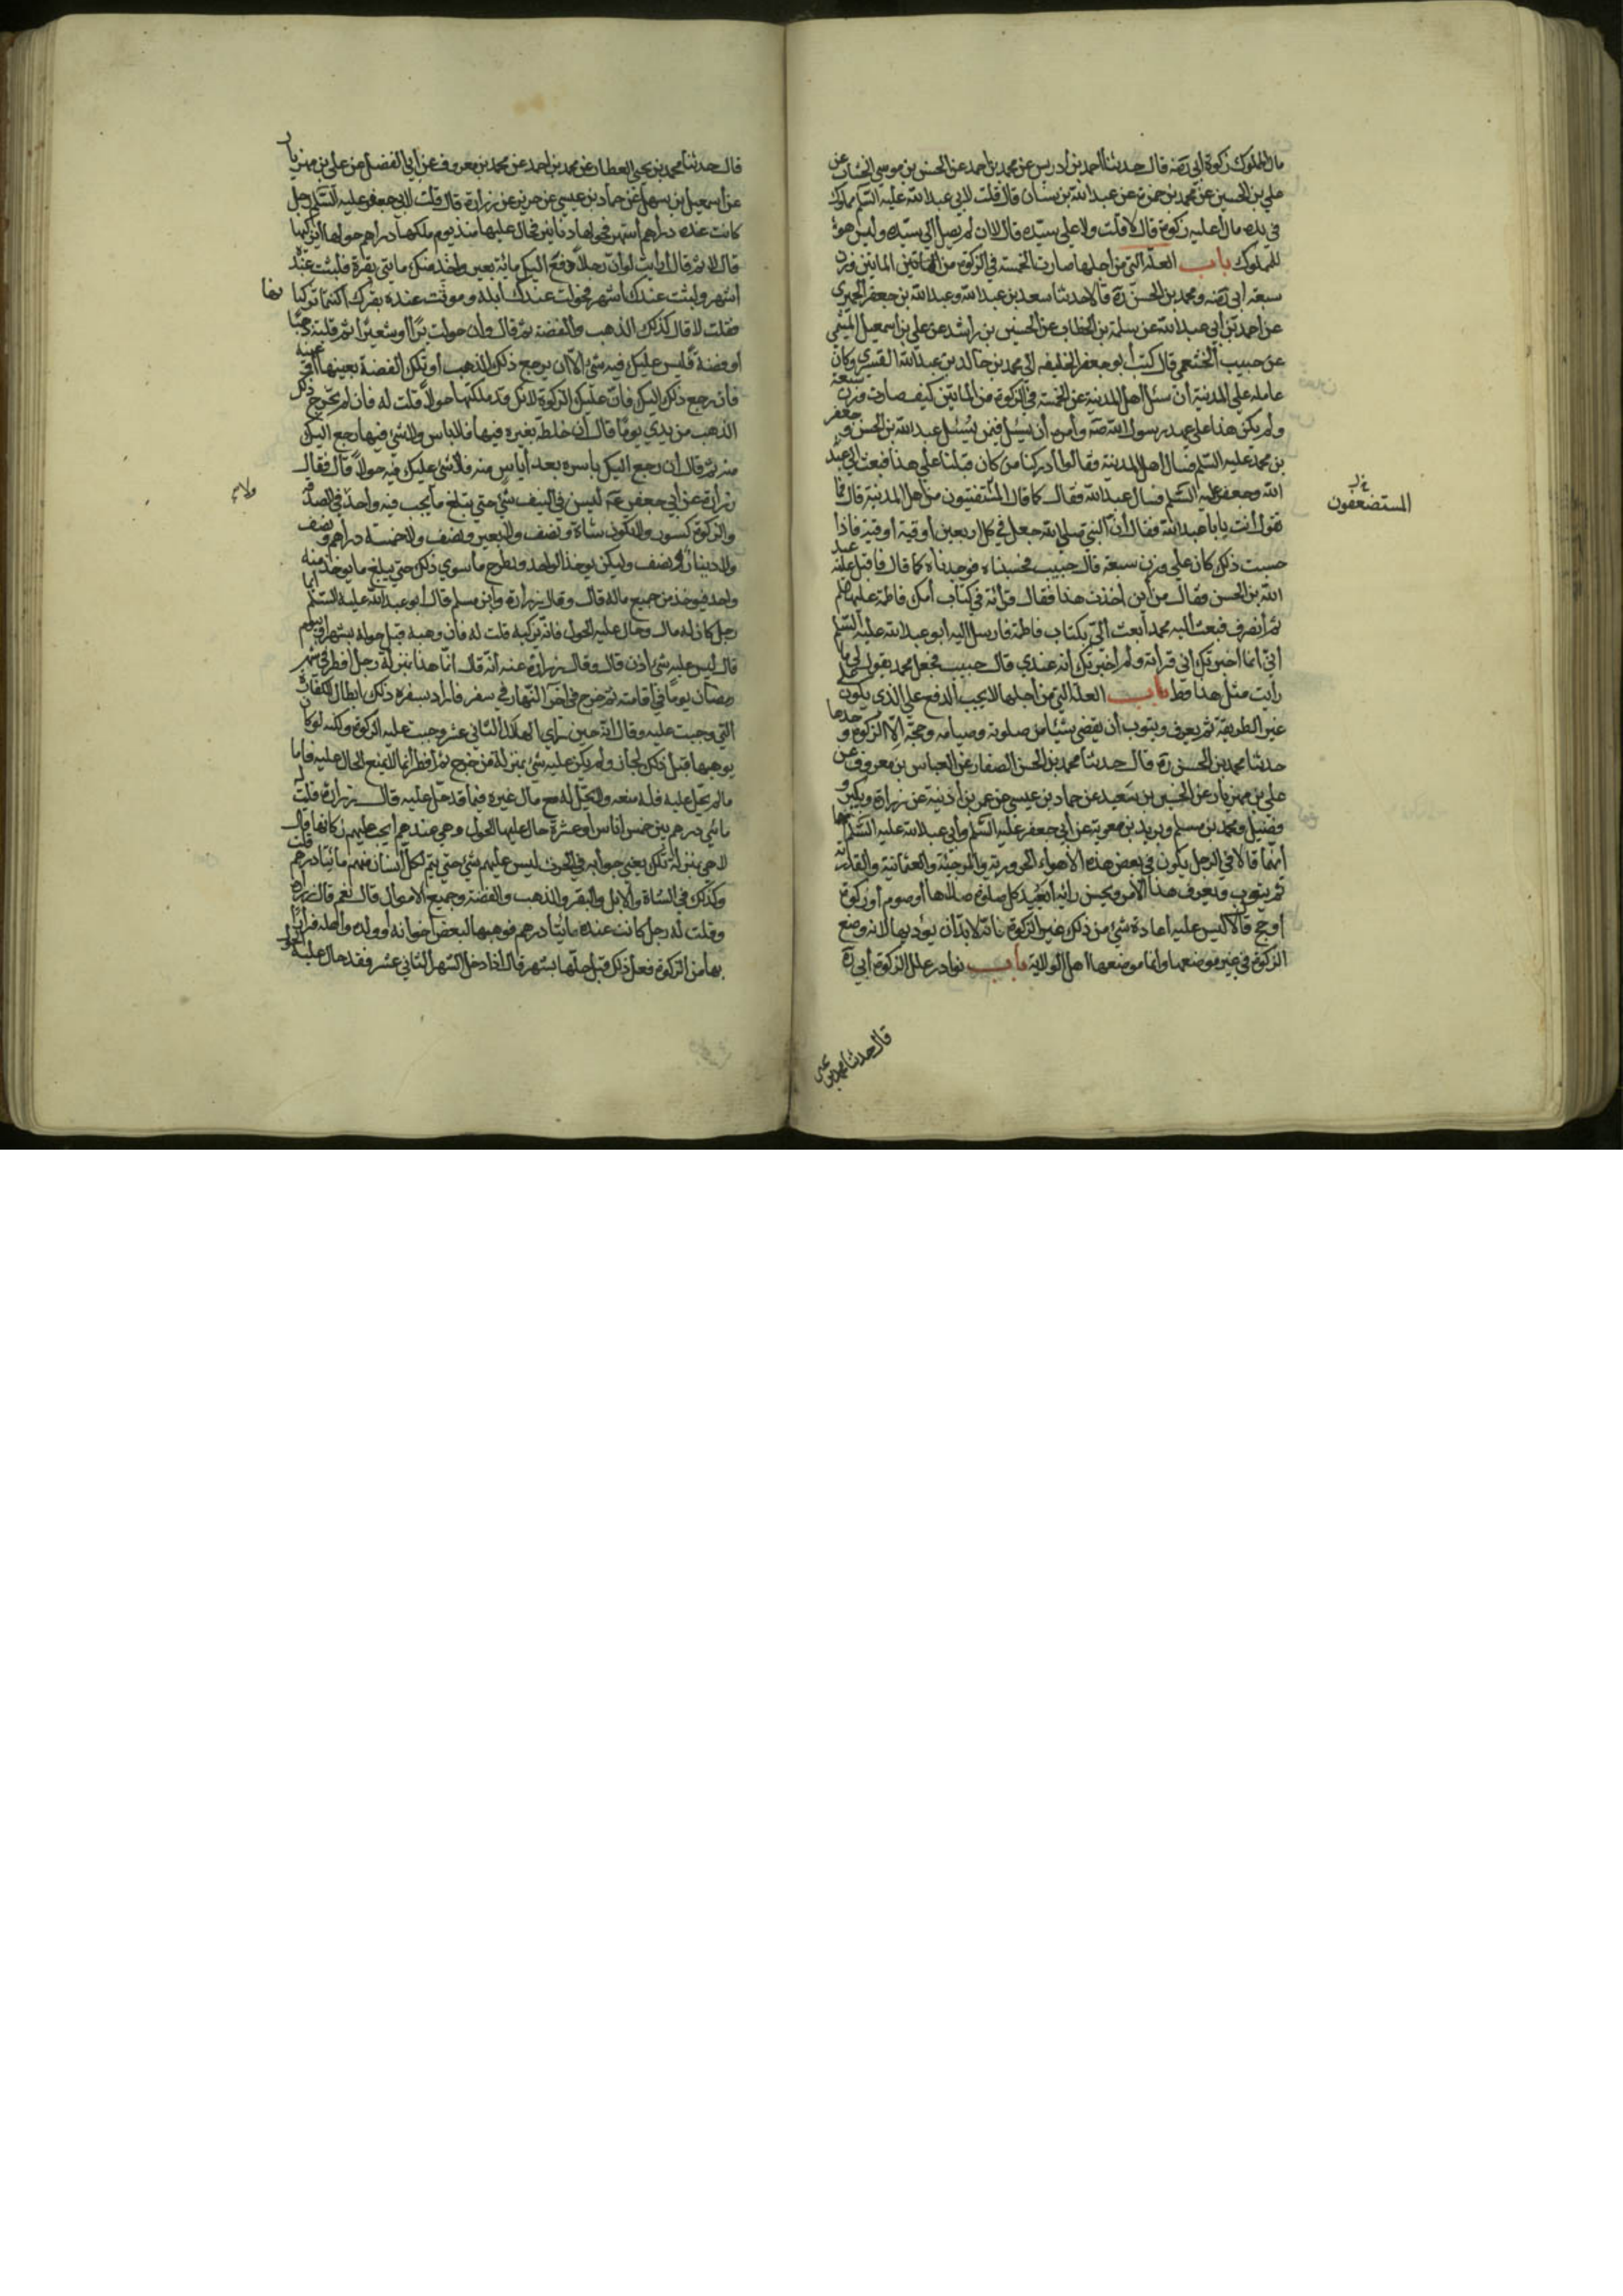 مال المملوك زكوة أبي ره قال حدثنا أحمد بن ادريس عن محمد بن احمد عن الحسن بن موسى الخشاب عن
علي بن الحسين عن محمد بن حمزة عن عبدالله بن سنان قال قلت لابي عبدالله عليه السلم مملوك
في يده مال أعليه زكوة قال لا قلت ولا على سيده قال لا لان لم يصل الى سيده وليس هو
للمملوك باب العلة التي من أجلها صارت الخمسة في الزكوة من المائتين وزن
سبعة أبي ره ومحمد بن الحسن ره قالا حدثنا سعد بن عبدالله وعبدالله بن جعفر الحميري
عن احمد بن أبي عبدالله عن سلمة بن الخطاب عن الحسين بن راشد عن علي بن اسمعيل الميثمي
عن حبيب الخثعمي قال كتب أبو جعفر الخليفه الى محمد بن خالد بن عبدالله القسري وكان
عامله على المدينة أن سئل اهل المدينة عن الخمسة في الزكوة من المائتين كيف صارت وزن سبعة
ولم يكن هذا على عهد رسول الله صه وأمره أن يسئل فيمن يسئل عبدالله بن الحسن وجعفر
بن محمد عليه السلم فسال اهل المدينة فقالوا أدركنا من كان قبلنا على هذا فبعث الى عبد
الله وجعفر عليه السلم فسال عبدالله فقال كما قال المستفتيون من اهل المدينة قال فما
تقول أنت يابا عبدالله فقال أن النبي صلى الله جعل في كل اربعين أوقية أوقية فاذا
حسبت ذلك كان على وزن سبعة قال حبيب فحسبناه فوجدناه كما قال فاقبل عليه عبد
الله بن الحسن وقال من أين اخذت هذا فقال قرأته في كتاب أمك فاطمة عليها السلم
ثم أنصرف فبعث اليه محمد أبعث الي بكتاب فاطمة فارسل اليه أبو عبدالله عليه السلم
أني انما اخبرتك أني قرأته ولم أخبرك انه عندي قال حبيب فجعل محمد يقول لي ما
رأيت مثل هذا قط باب العلة التي من أجلها لا يجب الدفع على الذي يكون على
غير الطريقة ثم يعرف ويتوب أن يقضي شيئا من صلوته وصيامه وحجه الا الزكوة وحدها
حدثنا محمد بن الحسن ره قال حدثنا محمد بن الحسن الصفار عن العباس بن معروف عن
علي بن مهزيار عن الحسين بن سعيد عن حماد بن عيسى عن عمر بن أذينة عن زرارة وبكير و
فضيل ومحمد بن مسلم وبريد بن معوية عن أبي جعفر عليه السلم وأبي عبدالله عليه السلم
أنهما قالا في الرجل يكون في بعض هذه الأهواء الحرورية والمرجئة والعثمانية والقدرية
ثم يتوب ويعرف هذا الامر ويحسن رأيه أيعيد كل صلوة صلاها أو صوم أو زكوة
أو حج قالا ليس عليه اعادة شئ من ذلك غير الزكوة فانه لا بد أن يؤديها لانه وضع
الزكوة في غير موضعها وانما موضعها اهل الولاية باب نوادر علل الزكوة أبي ره
المستضعفون
قال حدثنا محمد بن يحيى
قال حدثنا محمد بن يحيى العطار عن محمد بن احمد عن محمد بن معروف عن أبي الفضل عن علي بن مهزيار
عن اسمعيل بن سهل عن حماد بن عيسى عن حريز عن زرارة قال قلت لابي جعفر عليه السلم رجل
كانت عنده دراهم أشهر فحولها دنانير فحال عليها منذ يوم ملكها دراهم حولها ايزكيها
قال لا ثم قال أرايت لو ان رجلا دفع اليك مائة بعير واخذ منك مائتي بقرة فلبثت عنده
أشهر ولبثت عندك أشهر فموتت عندك أبله وموتت عنده بقرك اكنتما تزكيانها
فقلت لا قال كذلك الذهب والفضة ثم قال وان حولت برا أو شعيرا ثم قلبته ذهبا
أو فضة فليس عليك فيه شئ الا ان يرجع ذلك الذهب أو تلك الفضة بعينها أو عينه
فان رجع ذلك اليك فان عليك الزكوة لانك قد ملكتها حولا قلت له فان لم يخرج ذلك
الذهب من يدي يوما قال ان خلط بغيره فيها فلا باس ولا شئ فيما رجع اليك
منه ثم قال ان رجع اليك باسره بعد أياس منه فلا شئ عليك فيه حولا قال فقال
زرارة عن أبي جعفر عه ليس في النيف شئ حتى يبلغ ما يجب فيه واحد في الصدقة
والزكوة كسور ولا تكون شاة ونصف ولا بعير ونصف ولا خمسة دراهم ونصف
ولا دينار ونصف ولكن يوخذ الواحد ويطرح ما سوى ذلك حتى يبلغ ما يوخذ منه
واحد فيوخذ من جميع ماله قال وقال زرارة وابن مسلم قال أبو عبدالله عليه السلم ايما
رجل كان له مال وحال عليه الحول فانه يزكيه قلت له فان وهبه قبل حوله بشهر أو بيوم
قال ليس عليه شئ اذن قال وقال زرارة عنه أنه قال انما هذا بمنزلة رجل افطر في شهر
رمضان يوما في اقامته ثم خرج في اخر النهار في سفر فاراد بسفره ذلك ابطال الكفارة
التي وجبت عليه وقال انه حين رأى الهلال الثاني عشر وجبت عليه الزكوة ولكنه لو كان
يوهبها قبل ذلك لجاز ولم يكن عليه شئ بمنزلة من خرج ثم أفطر انما لا يمنع الحال عليه فاما
مالم يحل عليه فله منعه ولا يحل له منع مال غيره فيما قد حل عليه قال زرارة قلت له
مائتي درهم بين خمس أناس أو عشرة حال عليها الحول وهي عندهم ايجب عليهم زكاتها قال
لا هي بمنزلة تلك يعني جوابه في الحرث ليس عليهم شئ حتى يتم لكل أنسان منهم مائتا درهم قلت
وكذلك في الشاة والابل والبقر والذهب والفضة وجميع الاموال قال نعم قال زرارة
وقلت له رجل كانت عنده مائتا درهم فوهبها لبعض أخوانه أو ولده أو اهله فرارا
بها من الزكوة فعل ذلك قبل حلها بشهر قال اذا دخل الشهر الثاني عشر فقد حال عليه الحول